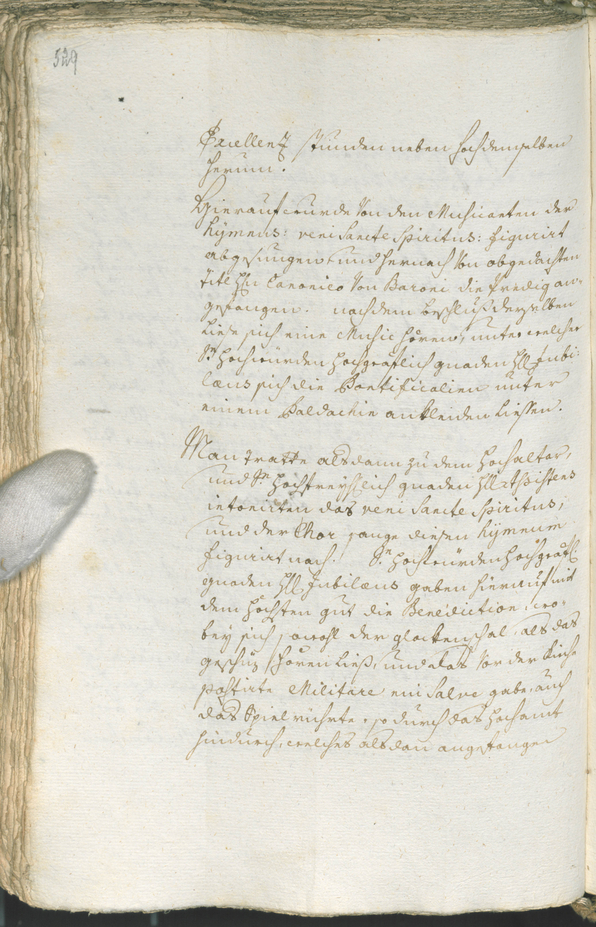 529
Excellentz stunden neben hochdemselben
herum.
Hierauf wurde von den Musicanten der
hymnus: veni Sancte Spiritus: figurirt
abgesungen, und hernach von obgedachten
titl H: Canonico von Baroni die Predig an-
gefangen. nachdem beschluß derselben
ließe sich eine Music hören, unter welcher
Sr hochwürden hochgräflich gnaden HH: Jubi-
laeus sich die Pontificalien unter
einem Baldachin ankleiden liessen.
Man tratte alsdann zu dem hochaltar,
und Sr hochfreyherrlich gnaden HH: Assistens
intonirten das veni Sancte Spiritus,
und der Chor sange diesen hymnum
figurirt nach. Sr hochwürden hochgräfl:
gnaden HH: Jubilaeus gaben hierauf mit
dem höchsten gut die Benediction, wo-
bey sich sowohl der glockenschal, als das
geschüz hören ließ, und das vor der Kirche
postirte Militare ein Salve gabe, auch
das Spiel rührte, so durch das hochamt
hindurch, welches alsdan angefangen